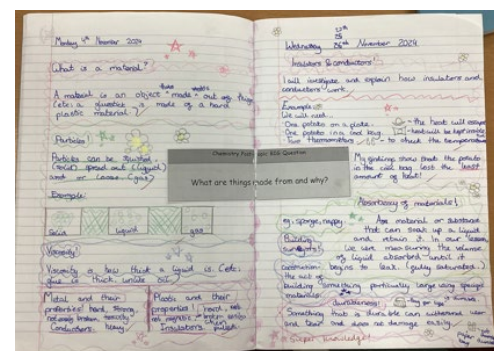 Monday 4th November 2024
What is a material?
A material is an object "made" out of things
(etc: a gluestick is made of a hard
plastic material.)
Particles!
Particles can be squished
(solid) spread out (liquid)
and or loose (gas)
Example:
solid liquid gas
Viscosity!
Viscosity is how thick a liquid is. (etc:
glue is thick, unlike oil)
Metal and their
properties! hard, strong,
Conductors. heavy
Plastic and their
properties!
not magnetic
Insulators.
Chemistry Full Topic, BIG Question
What are things made from and why?
Wednesday November 2024
Insulators & conductors!
I will investigate and explain how insulators and
conductors work.
Example
We will need...
One potato on a plate. - the heat will escape
One potato in a cool bag. - heat will be kept inside
Two thermometers - to check the temperature
My findings show that the potato
in the cool bag lost the least
amount of heat!
Absorbency of materials!
eg: sponge, nappy. Are material or substance
that can soak up a liquid
and retain it. In our lesson,
we were measuring the volume
of liquid absorbed until it
begins to leak. (fully saturated)
Construction:
the act of
building something particularly large using
materials.
durableness!
Something that is durable can withstand wear
and tear and does no damage easily.
Super Knowledge!